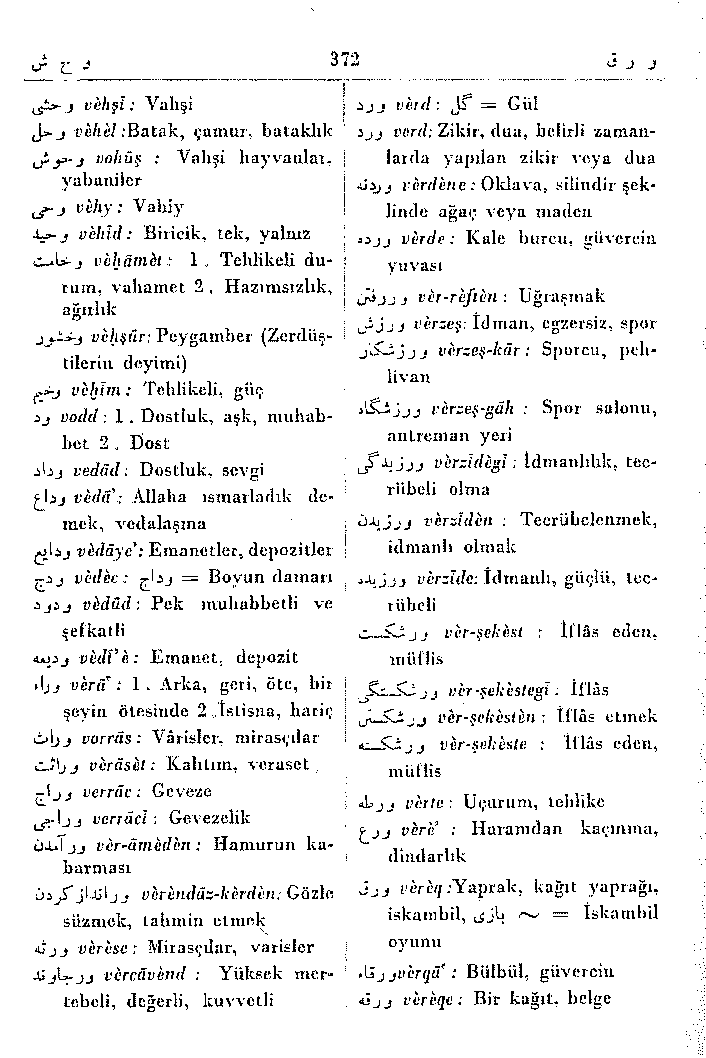 و ح ش
372
و ر ق
وحشی vèhşî : Vahşi
وحل vèhèl :Batak, çamur, bataklık
وحوش vohûş : Vahşi hayvanlar,
yabaniler
وحی vèhy : Vahiy
وحید vèhîd : Biricik, tek, yalnız
وخامت vèḫâmèt : 1 . Tehlikeli du-
rum, vahamet 2 . Hazımsızlık,
ağırlık
وخشور vèḫşûr: Peygamber (Zerdüş-
tilerin deyimi)
وخیم vèḫîm : Tehlikeli, güç
ود vodd : 1 . Dostluk, aşk, muhab-
bet 2 . Dost
وداد vedâd : Dostluk, sevgi
وداع vèdâ' : Allaha ısmarladık de-
mek, vedalaşma
ودایع vèdâye': Emanetler, depozitler
ودج vèdèc : وداج = Boyun damarı
ودود vèdûd : Pek muhabbetli ve
şefkatli
ودیعه vèdî'è : Emanet, depozit
وراء vèrâ' : 1 . Arka, geri, öte, bir
şeyin ötesinde 2 .İstisna, hariç
وراث vorrâs : Vârisler, mirasçılar
وراثت vèrâsèt : Kalıtım, veraset
وراج verrâc : Geveze
وراجی verrâcî : Gevezelik
ورآمدن vèr-âmèdèn : Hamurun ka-
barması
وراندازکردن vèrèndâz-kèrdèn: Gözle
süzmek, tahmin etmek
ورثه vèrèse : Mirasçılar, varisler
ورجاوند vèrcâvènd : Yüksek mer-
tebeli, değerli, kuvvetli
ورد vèrd : گل = Gül
ورد verd: Zikir, dua, belirli zaman-
larda yapılan zikir veya dua
وردنه vèrdène : Oklava, silindir şek-
linde ağaç veya maden
ورده vèrde : Kale burcu, güvercin
yuvası
وررفتن vèr-rèften : Uğraşmak
ورزش vèrzeş: İdman, egzersiz, spor
ورزشکار vèrzeş-kâr : Sporcu, peh-
livan
ورزشگاه vèrzeş-gâh : Spor salonu,
antreman yeri
ورزیدگی vèrzîdègî : İdmanlılık, tec-
rübeli olma
ورزیدن vèrzîdèn : Tecrübelenmek,
idmanlı olmak
ورزیده vèrzîde: İdmanlı, güçlü, tec-
rübeli
ورشکست vèr-şekèst : İflâs eden,
müflis
ورشکستگی vèr-şekèstegî : İflâs
ورشکستن vèr-şekèstèn : İflâs etmek
ورشکسته vèr-şekèste : İflâs eden,
müflis
ورطه vèrte : Uçurum, tehlike
ورع vèrè' : Haramdan kaçınma,
dindarlık
ورق vèrèq :Yaprak, kağıt yaprağı,
iskambil, بازی ~ = İskambil
oyunu
ورقاء vèrqâ' : Bülbül, güvercin
ورقه vèrèqe : Bir kağıt, belge